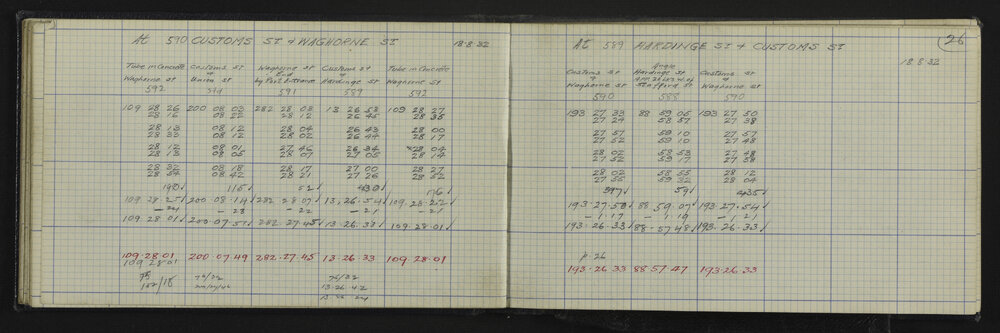 At 590 CUSTOMS St & WAGHORNE St 18.8.32
Tube in Concrete Customs St Waghorne St Customs St Tube in Concrete
& End &
Waghorne St Union St by Port Entrance Hardinge St Waghorne St
592 Std 591 589 592
109 28 26 200 08 03 282 28 08 13 26 53 109 28 27
28 16 08 22 28 12 26 45 28 35
28 13 08 12 28 04 26 43 28 00
28 33 08 12 28 02 26 44 28 17
28 12 08 01 27 46 26 34 28 04
28 13 08 05 28 07 27 05 28 14
28 32 08 18 28 17 27 00 28 27
28 54 08 42 28 21 27 26 28 52
115 52 176
109.28.25 200.08.14 282.28.07 13.26.54 109.28.22
-24 -23 -22 -21 -21
109.28.01 200.07.51 282.27.45 13.26.33 109.28.01
109.28.01 200.07.49 282.27.45 13.26.33 109.28.01
109 28 01
76/32
13.26.42
At 589 HARDINGE St & CUSTOMS St 26
18.8.32
Customs St Angle Customs St
& Hardinge St &
Waghorne St Stafford St Waghorne St
590 588 590
193 27 33 88 59 05 193 27 50
27 24 58 57 27 38
27 57 59 10 27 57
27 52 59 10 27 48
28 02 58 53 27 48
27 52 59 17 27 38
28 02 58 55 28 12
27 55 59 32 28 04
397 59 435
193.27.50 88.59.07 193.27.54
-1.17 -1.19 -1.21
193.26.33 88.57.48 193.26.33
p.26
193.26.33 88.57.47 193.26.33